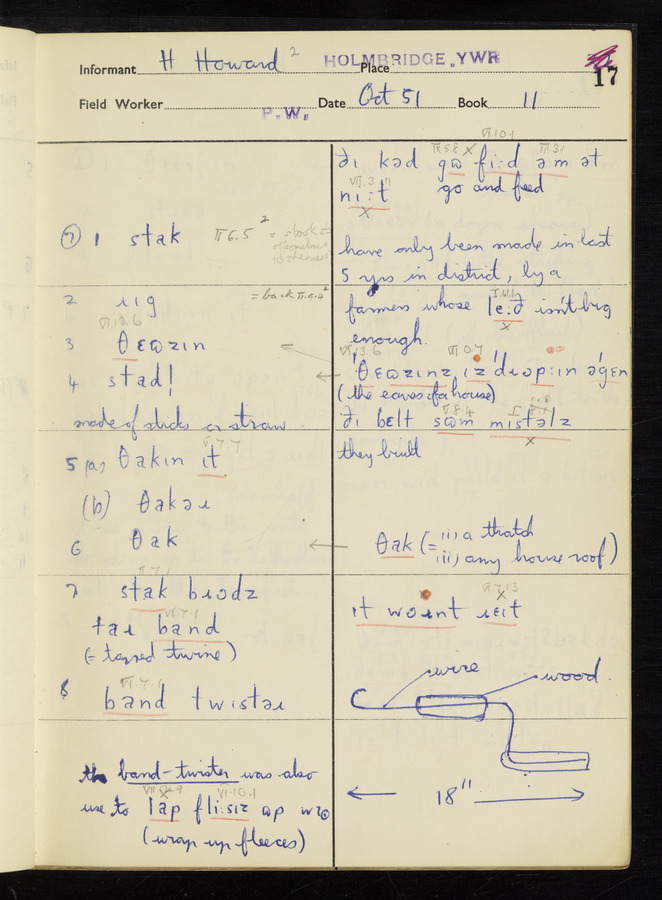 Informant H Howard 2 HOLMBRIDGE, YWR Place
17
Field Worker P.W. Date Oct 51 Book 11
(7) 1 stak II 6.5 2
2 ɹɪg = back II.9.4 2
VII.13.6
3 θɛɷzɪn
4 stad!
made of sticks or straw
V.7.7
5 (a) θakɪn ɪt
(b) θakəɹ
6 θak
II.7.1
7 stak bɹɔdz
VI.7.1
taɹ band
(= tarred twine)
VI.7.1
8 band twɪstəɹ
the band-twister was also
VI.10.1
use to lap fli:sɪz ɷp wɪə
(wrap up fleeces)
IV.5.8 X VI.10.1 III.3.1
ðɪ kəd gɷ fi:d əm ət
VII.3.11
nɪ:t go and feed
X
have only been made in last
5 yrs in district, by a
farmers whose le:ð isn't big
X
enough.
VII.13.6 VI.0.7
'θɛɷzɪnz ɪz 'dɹɷp:ɪn əgɛn
(the eaves of a house)
V.8.4
ðɪ bɛlt sɷm mɪstəlz
X
they built
θak (= (i) a thatch
(ii) any house roof)
V.7.13
ɪt wɔənt ɹɛɪt
wire
wood
18"